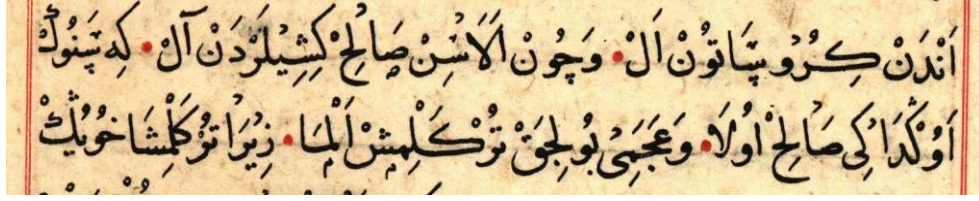 اَنْدَنْ كِرُو سَاتُونْ اَلْ • وَچُونْ اَلَاسِنْ صَالِحْ كِشِيلَرْدَنْ آلْ • كِه سَنُوڭْ
اَوُڭْدَاكِى صَالِحْ اُولَا • وَعَجَمِىْ بُولِجَقْ تُرْكَلْمِشْ اَلْمَا • زِيْرَا تُرْكَلْمِشَا خُويُڭْ